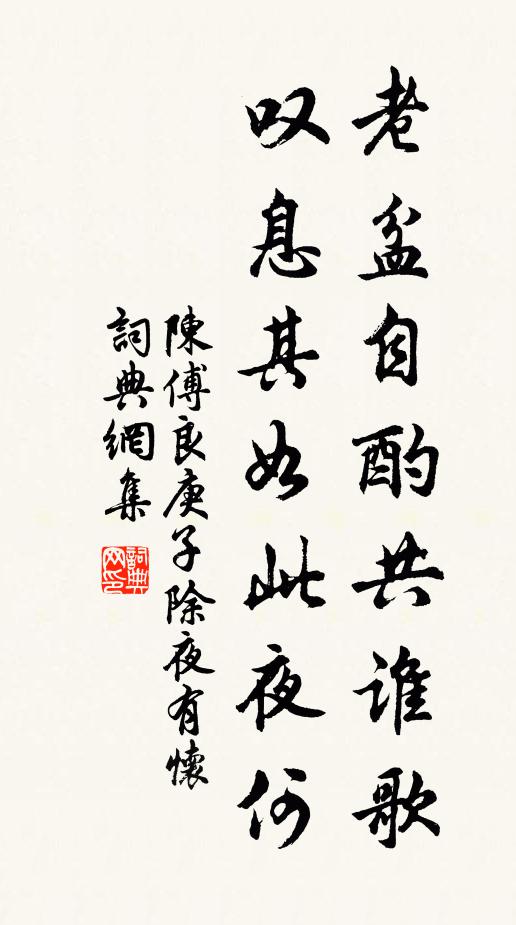 老盆自酌共誰歌
叹息其如此夜何
陳傅良庚子除夜有懷
詞典網集
詞典網印